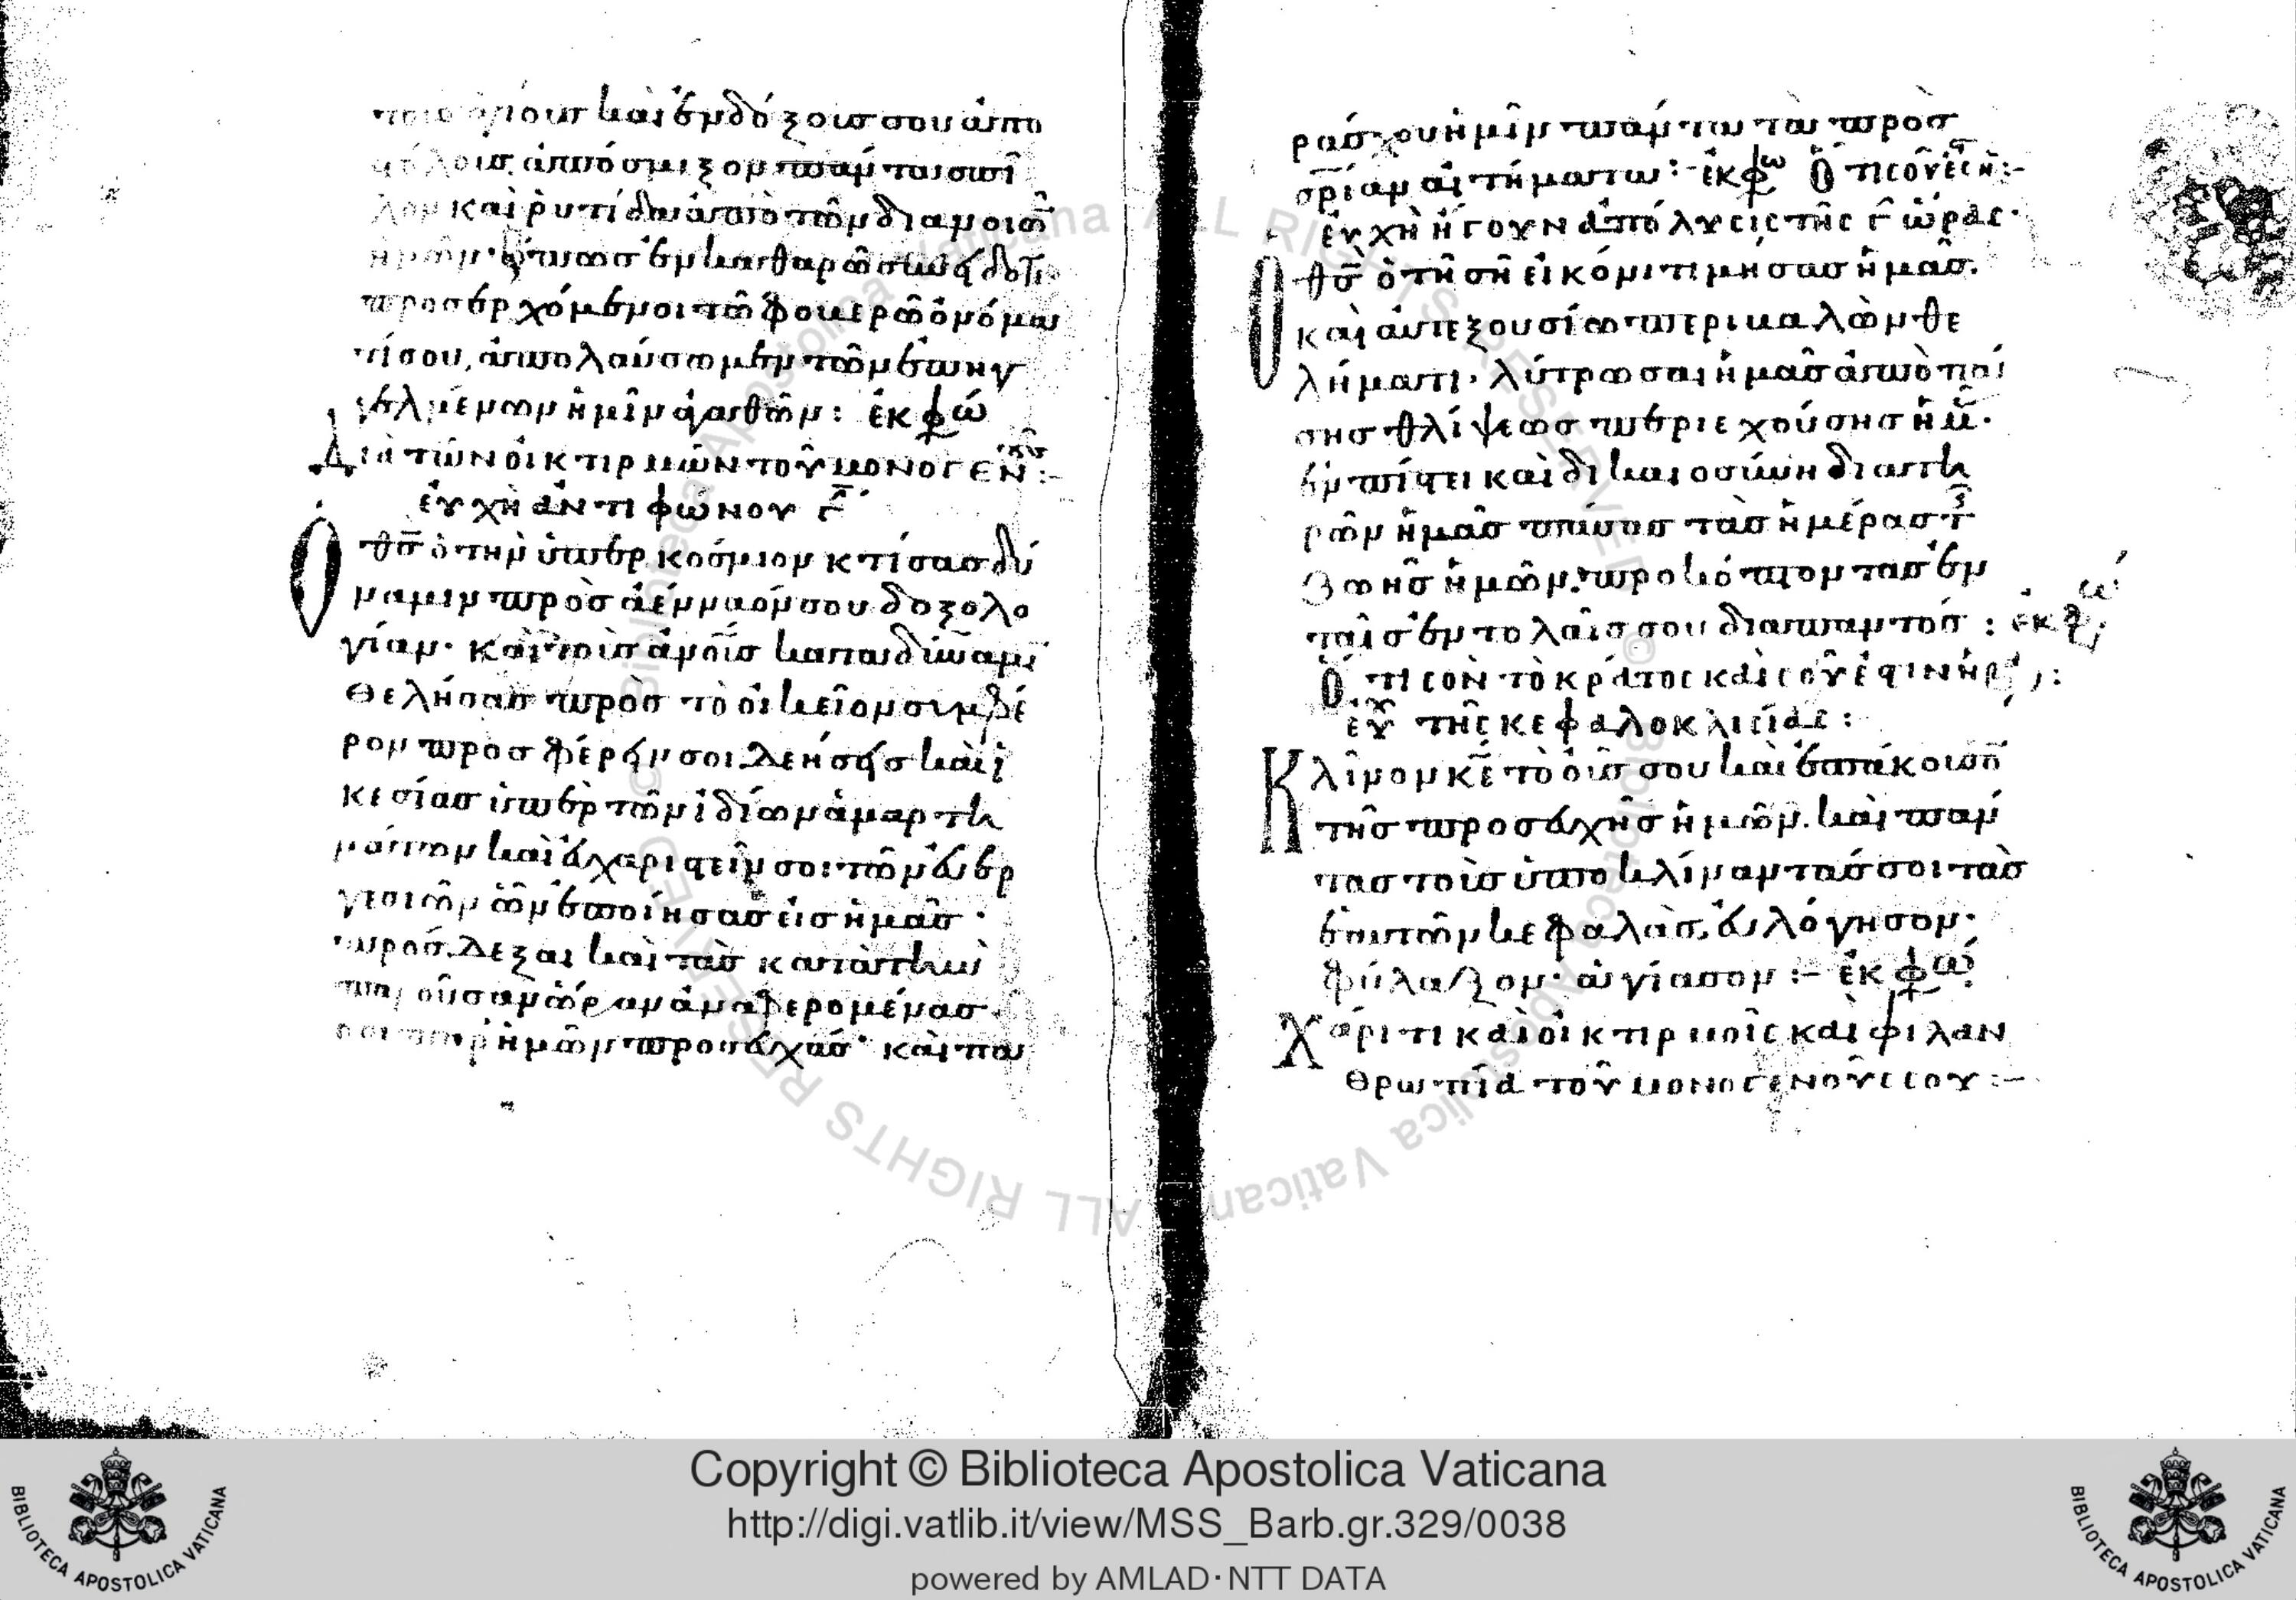 τοῖς ἁγίοις καὶ ἐνδόξοις σου ἀπο
στόλοις, ἀπόσμιξον πάντα σπῖ
λον καὶ ῥυτίδα ἀπὸ τῶν διανοιῶν
ἡμῶν· ὅπως ἐν καθαρῶ συνειδότι
προσερχόμενοι τῶ φοβερῶ ὀνόμα
τί σου, ἀπολαύσωμεν τῶν ἐπηγ
γελμένων ἡμῖν ἀγαθῶν: ἐκφώ
Διὰ τῶν οἰκτιρμῶν τοῦ μονογεν:-
εὐχὴ ἀντιφώνου γ
Ὁ θς ὁ τὴν ὑπερκόσμιον κτίσας δύ
ναμιν πρὸς ἀένναόν σου δοξολο
γίαν· καὶ τοῖς ἀνοις
θελήσας πρὸς τὸ οἰκεῖον συμφέ
ρον προσφέρειν σοι δεήσεις καὶ ἱ
κεσίας ὑπὲρ τῶν ἰδίων ἁμαρτη
μάτων καὶ εὐχαριστεῖν σοι τῶν εὐερ
γεσιῶν ὧν ἐποίησας εἰς ἡμᾶς·
πρόσδεξαι καὶ τὰς κατὰ τὴν
παροῦσαν ὥραν ἀναφερομένας
σοι παρ ἡμῶν προσευχάς· καὶ πα
ράσχου ἡμῖν πάντα τὰ πρὸς
σρίαν αἰτήματα:- ἐκφω Ὅτι σοῦ ἐστὶν:-
εὐχὴ ἤγουν ἀπόλυσις τῆς γ ὥρας·
Ὁ θς ὁ τῆ σῆ εἰκόνι τιμήσας ἡμᾶς.
καὶ αὐτεξουσίω περικαλῶν θε
λήματι· λύτρωσαι ἡμᾶς ἀπὸ πά
σης θλίψεως περιεχούσης ἡμ·
ἐν πίστει καὶ δικαιοσύνη διατη
ρῶν ἡμᾶς πάσας τὰς ἡμέρας τ
ζωῆς ἡμῶν. προκόπτοντας ἐν
ταῖς ἐντολαῖς σου διαπαντός: ἐκφώ
Ὅτι σὸν τὸ κράτος καὶ σοῦ ἐστιν ἡ β:
εὐχ τῆς κεφαλοκλισίας:
Κλῖνον κε τὸ οὖς σου καὶ ἐπάκουσο
τῆς προσευχῆς ἡμῶν. καὶ πάν
τας τοὺς ὑποκλίναντάς σοι τὰς
ἑαυτῶν κεφαλὰς, εὐλόγησον·
φύλαξον· ἁγίασον:- ἐκφώ
Χάριτι καὶ οἰκτιρμοῖς καὶ φιλαν
θρωπία τοῦ μονογενοῦς σου:-
Copyright © Biblioteca Apostolica Vaticana
http://digi.vatlib.it/view/MSS_Barb.gr.329/0038
powered by AMLAD·NTT DATA
BIBLIOTECA APOSTOLICA VATICANA
BIBLIOTECA APOSTOLICA VATICANA
© Biblioteca Apostolica Vaticana ALL RIGHTS RESERVED